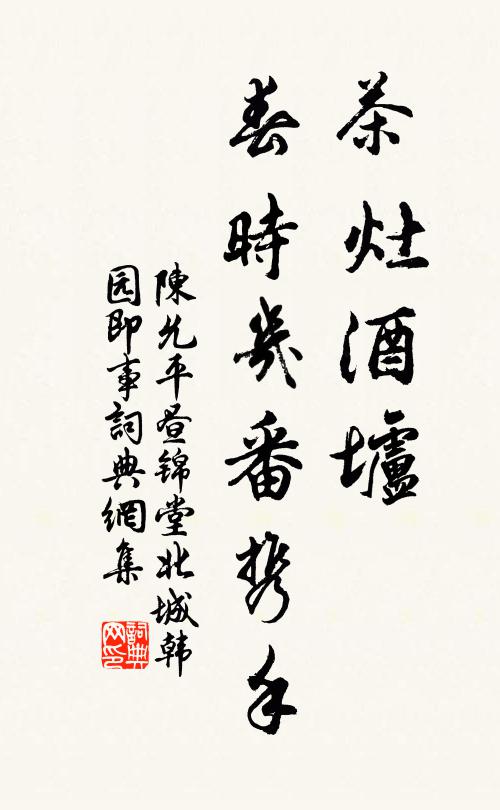 茶灶酒壚
春時幾番携手
陳允平昼锦堂北城韩
园即事詞典網集
詞典
网印